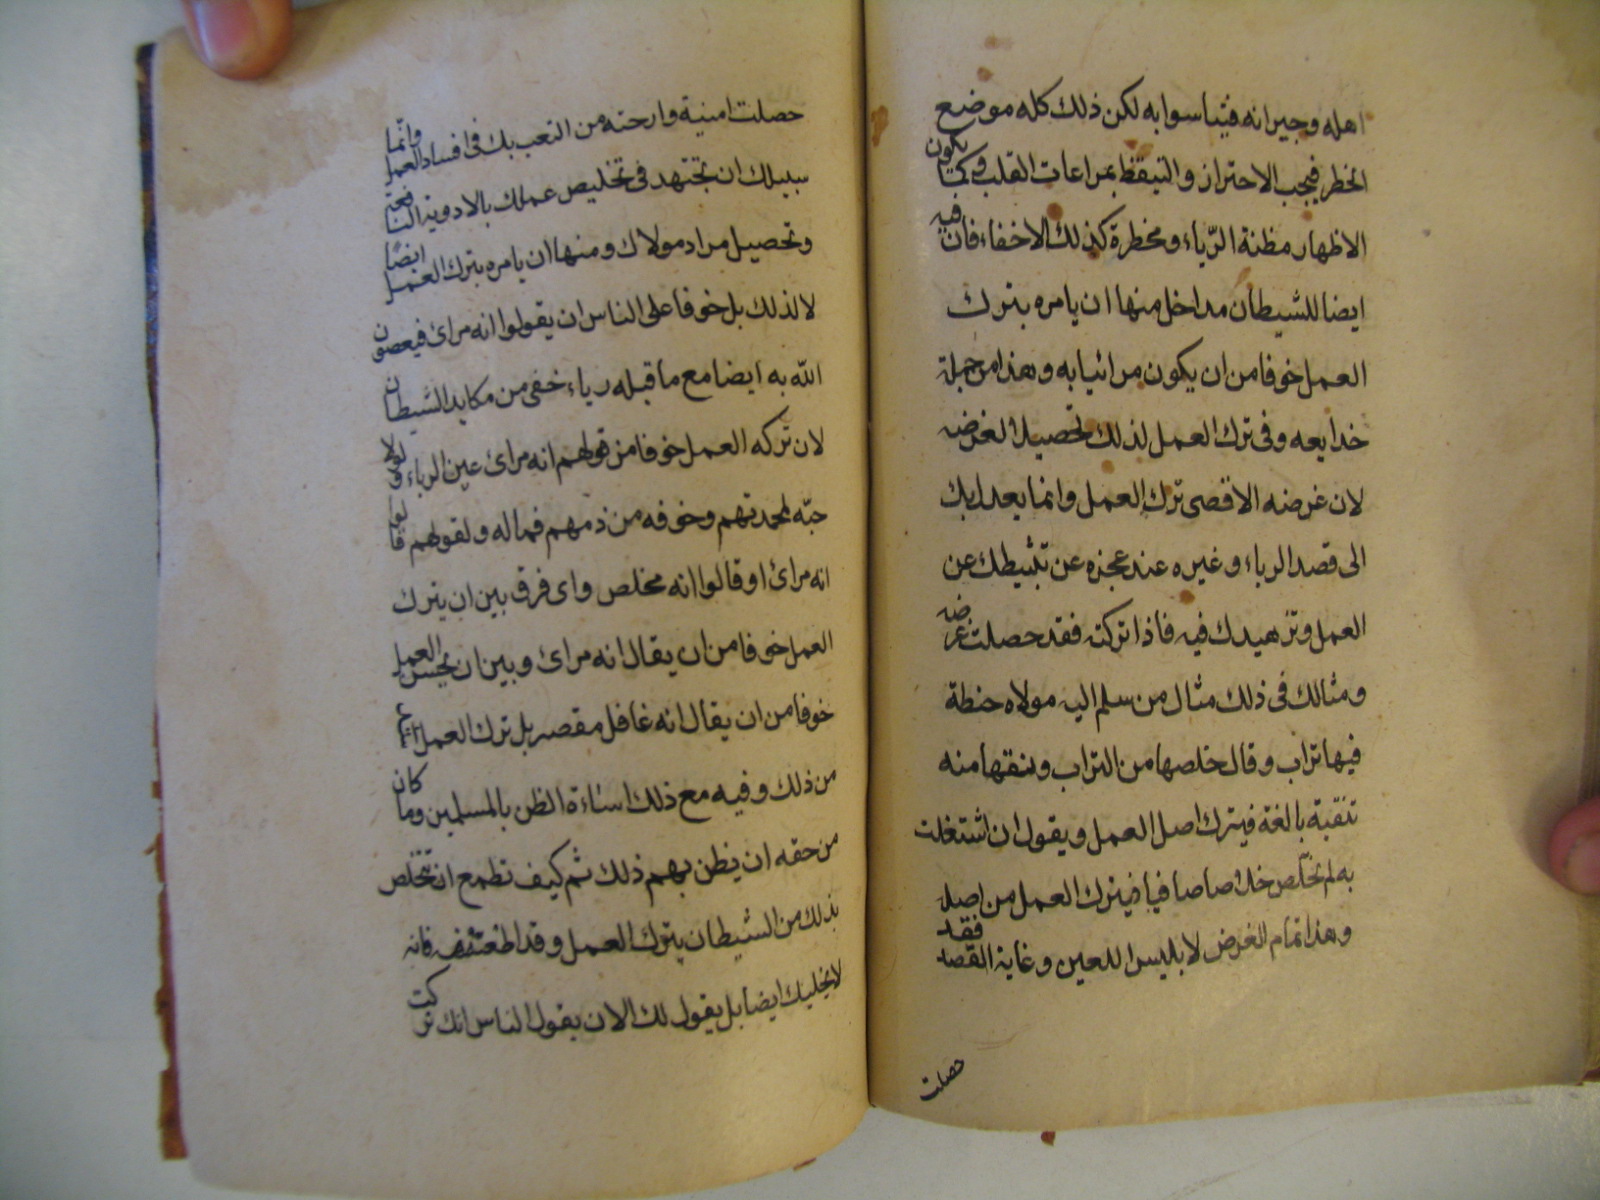 اهله وجيرانه فيتاسوا به لكن ذلك كله موضع
الخطر فيجب الاحتراز والتيقظ بمراعات القلب وكما يكون
الاظهار مظنة الرّياء ومخطرة كذلك الاخفاء فان فيه
ايضا للشيطان مداخل منها ان يامره بترك
العمل خوفا من ان يكون مرائيا به وهذا من جملة
خدايعه وفى ترك العمل لذلك تحصيل الغرضه
لان غرضه الاقصى ترك العمل وانما يعدل بك
الى قصد الرياء وغيره عند عجزه عن تثبيطك عن
العمل وتزهيدك فيه فاذا تركته فقد حصلت غرضه
ومثالك فى ذلك مثال من سلم اليه مولاه حنطة
فيها تراب وقال خلصها من التراب ونقها منه
تنقية بالغة فيترك اصل العمل ويقول ان اشتغلت
به لم تخلص خلاصا صافيا فيترك العمل من اصله
وهذا تمام الغرض لابليس اللعين وغاية القصد فقد
حصلت
حصلت امنية وارحته من التعب بك فى افساد العمل وانّما
سبيلك ان تجتهد فى تخليص عملك بالادوية النافعة
وتحصيل مراد مولاك ومنها ان يامره بترك العمل ايضًا
لا لذلك بل خوفا على الناس ان يقولوا انه مرائ فيعصون
الله به ايضا مع ما قبله رياء خفى من مكايد الشيطان
لان تركه العمل خوفا من قولهم انه مرائ عين الرياء ولولا
حبّه لمحمدتهم وخوفه من ذمهم فما له ولقولهم قالوا
انه مرائ او قالوا انه مخلص واى فرق بين ان يترك
العمل خوفا من ان يقال انه مرائ وبين ان يحسن العمل
خوفا من ان يقال انه غافل مقصر بل ترك العمل
من ذلك وفيه مع ذلك اساءة الظن بالمسلمين وما كان
من حقه ان يظن بهم ذلك ثم كيف تطمع ان تتخلص
بذلك من الشيطان بترك العمل وقد اطعته فيه فانه
لا يخليك ايضا بل يقول لك الان يقول الناس انك تركت